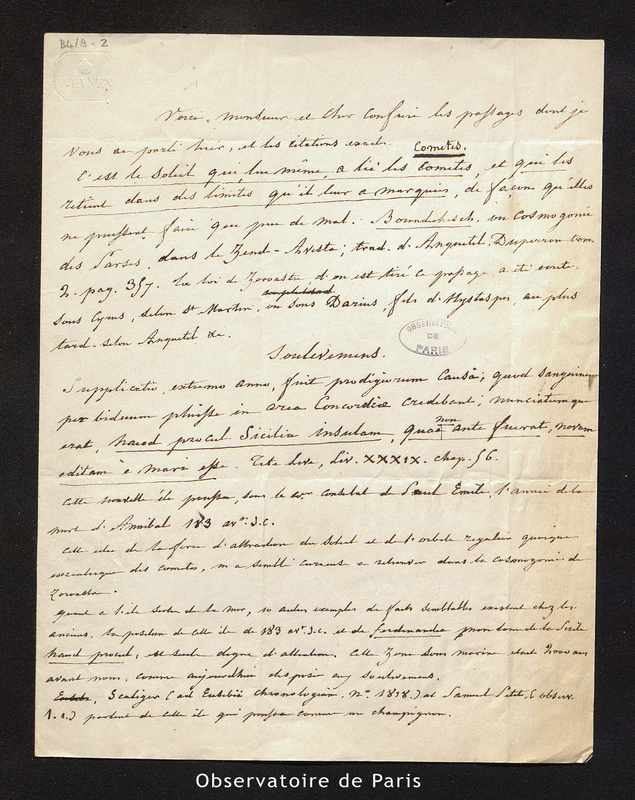 B4/9-2
Voici, monsieur et Cher Confrère les passages dont je
vous ai parlé hier, et les citations exactes.
Cometes.
C'est le Soleil qui, lui même, a lié les Cometes, et qui les
retient dans des limites qu'il leur a marquées, de façon qu'elles
ne puissent faire que peu de mal. Boundehesch, ou Cosmogonie
des Parses, dans le Zend-Avesta; trad. d'Anquetil Duperron tom.
2. pag. 357. La loi de Zoroastre d'où est tiré ce passage a été écrite
sous Cyrus, selon St Martin, ou sous Darius fils d'Hystaspes, au plus
tard selon Anquetil &c.
OBSERVATOIRE DE PARIS
Soulevemens.
Supplicatio, extremo anno, fuit prodigiorum Causa; quod sanguinem
per biduum pluisse in area Concordiæ credebant; nunciatumque
erat, haud procul Sicilia insulam, quæ non ante fuerat, novam
editam e mari esse. Tite live, Liv. XXXIX. chap. 56.
Cette nouvelle île poussa, sous le consulat de Paul Emile, l'année de la
mort d'Annibal 183 avt. J.C.
Cette idée de la force d'attraction du Soleil et de l'orbite régulière quoique
excentrique des comètes, m'a semblé curieuse à retrouver dans la cosmogonie de
Zoroastre.
Quant à l'île sortie de la mer, 10 autres exemples de faits semblables existent chez les
anciens. La position de cette île de 183 avt. J.C. et de Ferdinandea près de la Sicile
haud procul, est seule digne d'attention. Cette Zone sous marine était 2000 ans
avant nous, comme aujourd'hui disposée aux soulevemens.
Scaliger (ad Eusebii Chronologiam, n° 1818) et Samuel Petit, (observ.
1.1.) parlent de cette île qui poussa comme un champignon.
Observatoire de Paris